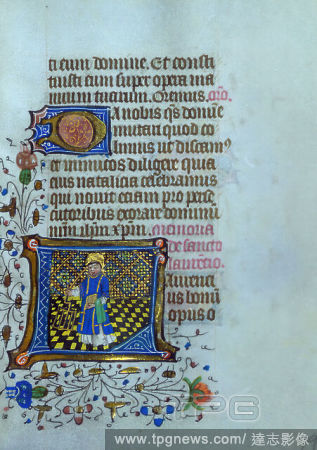 ti eum domine. Et consti
tuisti eum super opera ma
nuum tuarum. Oremus. oro.
Da nobis qs domine
imitari quod co
limus ut discam9
et inimicos diligere quia
eius natalicia celebramus
qui novit eciam pro perse
cutoribus exorare dominum
nrm ihm xpm. memoria
de sancto
laurencio.
Laurenti
us bonum
opus o
TPG
www.tpgnews.com/ 達志影像